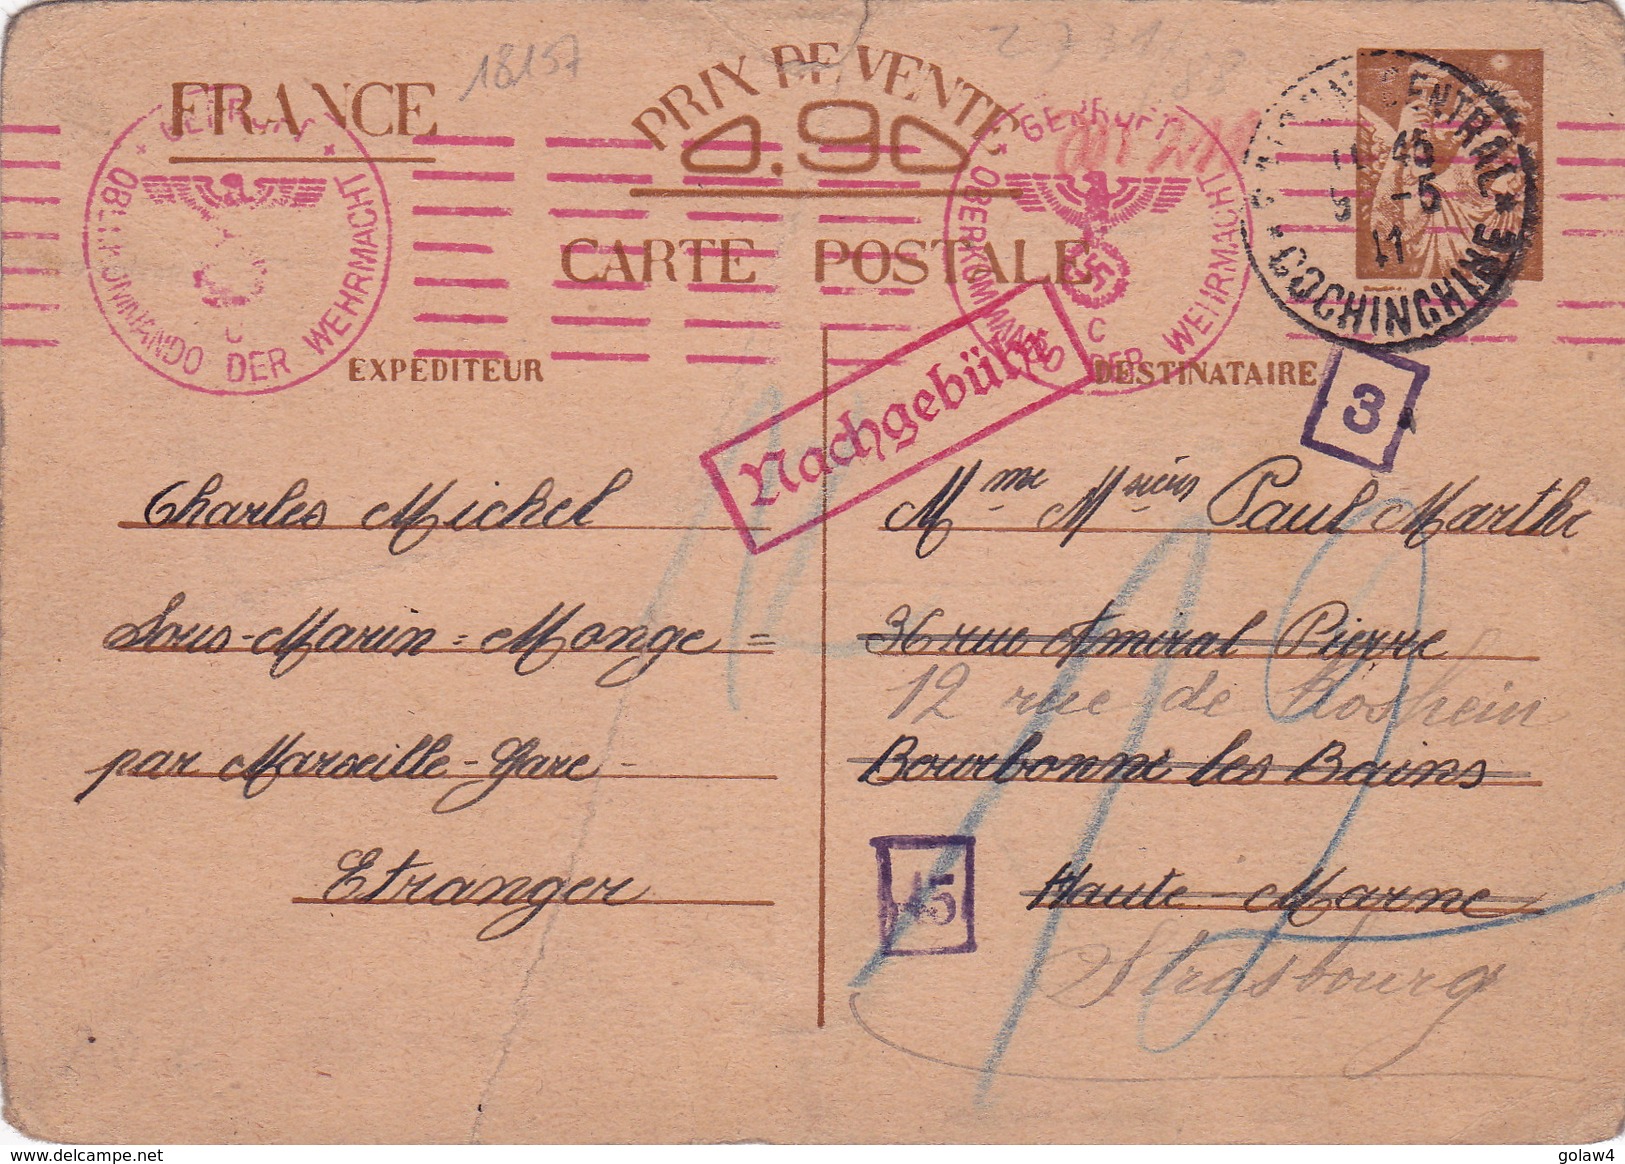 18157
FRANCE
PRIX DE VENTE
0.90
CARTE POSTALE
GEPRÜFT
OBERKOMMANDO DER WEHRMACHT
C
GEPRÜFT
OBERKOMMANDO DER WEHRMACHT
C
CENTRAL
COCHINCHINE
45
-5
EXPÉDITEUR
DESTINATAIRE
Nachgebühr
3
Charles Michel
Sous-Marin = Monge =
par Marseille-Gare-
Etranger
Mme Msieurs Paul Marthe
36 rue Amiral Pierre
12 rue de Rosheim
Bourbonne les Bains
45
Haute-Marne
Strasbourg
delcampe.net
golaw4